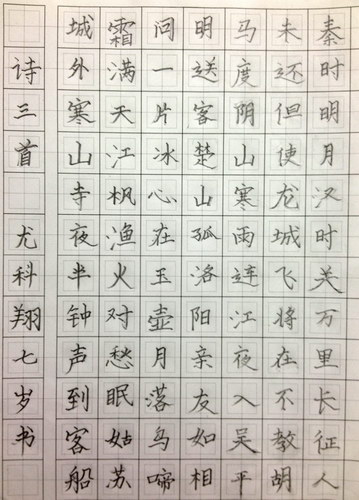 秦时明月汉时关万里长征人
未还但使龙城飞将在不教胡
马度阴山寒雨连江夜入吴平
明送客楚山孤洛阳亲友如相
问一片冰心在玉壶月落乌啼
霜满天江枫渔火对愁眠姑苏
城外寒山寺夜半钟声到客船
诗三首 尤科翔七岁书